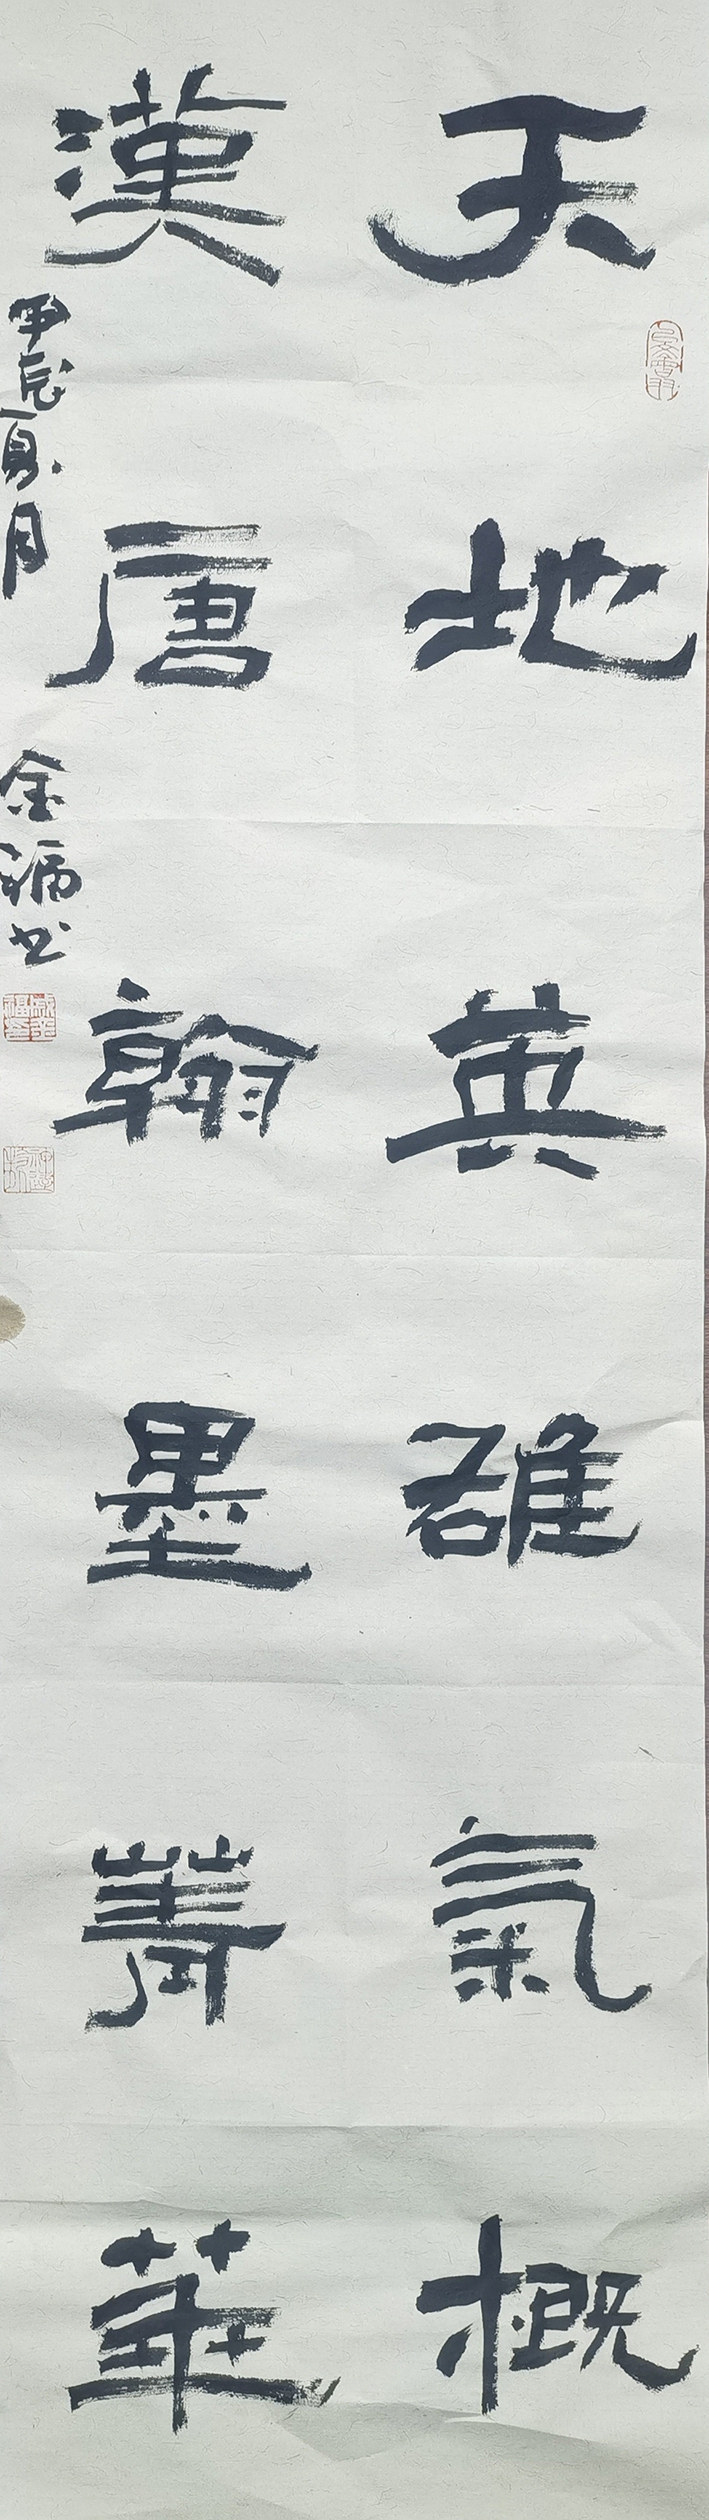 天地英雄氣概
漢唐翰墨菁華
甲辰夏月 金福书